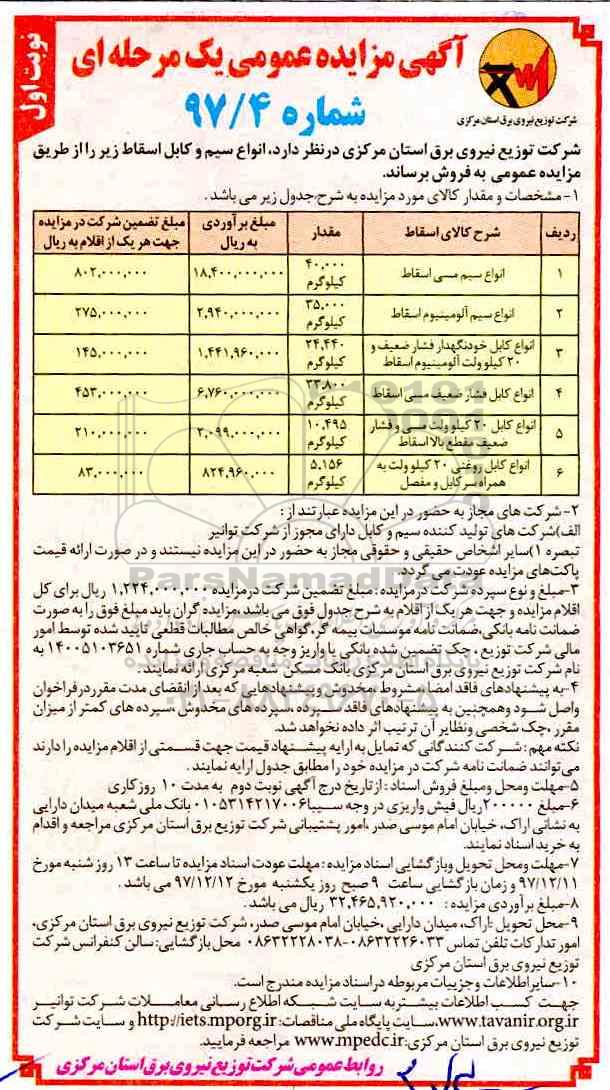 نوبت اول
آگهی مزایده عمومی یک مرحله ای
شماره ۹۷/۴
شرکت توزیع نیروی برق استان مرکزی
شرکت توزیع نیروی برق استان مرکزی درنظر دارد، انواع سیم و کابل اسقاط زیر را از طریق
مزایده عمومی به فروش برساند.
۱-مشخصات و مقدار کالای مورد مزایده به شرح جدول زیر می باشد.
ردیف شرح کالای اسقاط مقدار مبلغ برآوردی به ریال مبلغ تضمین شرکت در مزایده جهت هر یک از اقلام به ریال
۱ انواع سیم مسی اسقاط ۴۰,۰۰۰ کیلوگرم ۱۸,۴۰۰,۰۰۰,۰۰۰ ۸۰۲,۰۰۰,۰۰۰
۲ انواع سیم آلومینیوم اسقاط ۳۵,۰۰۰ کیلوگرم ۲,۹۴۰,۰۰۰,۰۰۰ ۲۷۵,۰۰۰,۰۰۰
۳ انواع کابل خودنگهدار فشار ضعیف و ۲۰ کیلو ولت آلومینیوم اسقاط ۲۴,۴۴۰ کیلوگرم ۱,۴۴۱,۹۶۰,۰۰۰ ۱۴۵,۰۰۰,۰۰۰
۴ انواع کابل فشار ضعیف مسی اسقاط ۳۳,۸۰۰ کیلوگرم ۶,۷۶۰,۰۰۰,۰۰۰ ۴۵۳,۰۰۰,۰۰۰
۵ انواع کابل ۲۰ کیلو ولت مسی و فشار ضعیف مقطع بالا اسقاط ۱۰,۴۹۵ کیلوگرم ۲,۰۹۹,۰۰۰,۰۰۰ ۲۱۰,۰۰۰,۰۰۰
۶ انواع کابل روغنی ۲۰ کیلو ولت به همراه سرکابل و مفصل ۵,۱۵۶ کیلوگرم ۸۲۴,۹۶۰,۰۰۰ ۸۳,۰۰۰,۰۰۰
۲-شرکت های مجاز به حضور در این مزایده عبارتند از:
الف)شرکت های تولید کننده سیم و کابل دارای مجوز از شرکت توانیر
تبصره ۱)سایر اشخاص حقیقی و حقوقی مجاز به حضور در این مزایده نیستند و در صورت ارائه قیمت
پاکت‌های مزایده عودت می گردد.
۳-مبلغ و نوع سپرده شرکت در مزایده: مبلغ تضمین شرکت درمزایده ۱,۲۲۴,۰۰۰,۰۰۰ ریال برای کل
اقلام مزایده و جهت هر یک از اقلام به شرح جدول فوق می باشد،مزایده گران باید مبلغ فوق را به صورت
ضمانت نامه بانکی،ضمانت نامه موسسات بیمه گر،گواهی خالص مطالبات قطعی تایید شده توسط امور
مالی شرکت توزیع، چک تضمین شده بانکی یا واریز وجه به حساب جاری شماره ۱۴۰۰۵۱۰۳۶۵۱ به
نام شرکت توزیع نیروی برق استان مرکزی بانک مسکن شعبه مرکزی ارائه نمایند.
۴-به پیشنهادهای فاقد امضا،مشروط ،مخدوش وپیشنهادهایی که بعد از انقضای مدت مقرر درفراخوان
واصل شود وهمچنین به پیشنهادهای فاقد سپرده ،سپرده های مخدوش ،سپرده های کمتر از میزان
مقرر ،چک شخصی ونظایر آن ترتیب اثر داده نخواهد شد.
نکته مهم: شرکت کنندگانی که تمایل به ارایه پیشنهاد قیمت جهت قسمتی از اقلام مزایده را دارند
می‌توانند ضمانت نامه شرکت در مزایده خود را مطابق جدول ارایه نمایند.
۵-مهلت ومحل ومبلغ فروش اسناد: از تاریخ درج آگهی نوبت دوم به مدت ۱۰ روز کاری
۶-مبلغ ۲۰۰۰۰۰ریال فیش واریزی در وجه سیبا۰۱۰۵۳۱۴۲۱۷۰۰۶ بانک ملی شعبه میدان دارایی
به نشانی اراک، خیابان امام موسی صدر ،امور پشتیبانی شرکت توزیع برق استان مرکزی مراجعه و اقدام
به خرید اسناد نمایند.
۷-مهلت ومحل تحویل وبازگشایی اسناد مزایده: مهلت عودت اسناد مزایده تا ساعت ۱۳ روز شنبه مورخ
۹۷/۱۲/۱۱ و زمان بازگشایی ساعت ۹ صبح روز یکشنبه مورخ ۹۷/۱۲/۱۲ می باشد.
۸-مبلغ برآوردی مزایده: ۳۲,۴۶۵,۹۲۰,۰۰۰ ریال می باشد.
۹-محل تحویل :اراک، میدان دارایی ،خیابان امام موسی صدر، شرکت توزیع نیروی برق استان مرکزی،
امور تدارکات تلفن تماس ۰۸۶۳۲۲۲۶۰۳۳-۰۸۶۳۲۲۲۸۰۳۸ محل بازگشایی: سالن کنفرانس شرکت
توزیع نیروی برق استان مرکزی
۱۰-سایراطلاعات وجزییات مربوطه دراسناد مزایده مندرج است.
جهت کسب اطلاعات بیشتر به سایت شبکه اطلاع رسانی معاملات شرکت توانیر
www.tavanir.org.ir،سایت پایگاه ملی مناقصات: http://iets.mporg.ir و سایت شرکت
توزیع نیروی برق استان مرکزی: www.mpedc.ir مراجعه فرمایید.
روابط عمومی شرکت توزیع نیروی برق استان مرکزی
ParsNamadData